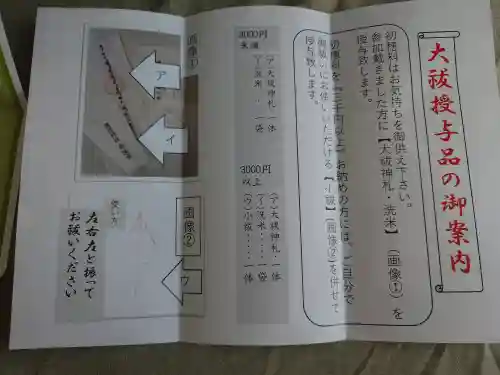 大祓授与品の御案内
初穂料はお気持ちを御供え下さい。
参加戴きました方に【大祓神札・洗米】(画像①)を
授与致します。
初穂料を『三千円以上』お納めの方には、ご自分で
御祓いにお使いいただける【小祓】(画像②)を併せて
授与致します。
3000円
未満
(ア)大祓神札・一体
(イ)洗米・・・一袋
3000円
以上
(ア)大祓神札・一体
(イ)洗米・・・・一袋
(ウ)小祓・・・・・一体
画像①
ア
イ
画像②
ウ
使い方
左右左と振って
お祓いください